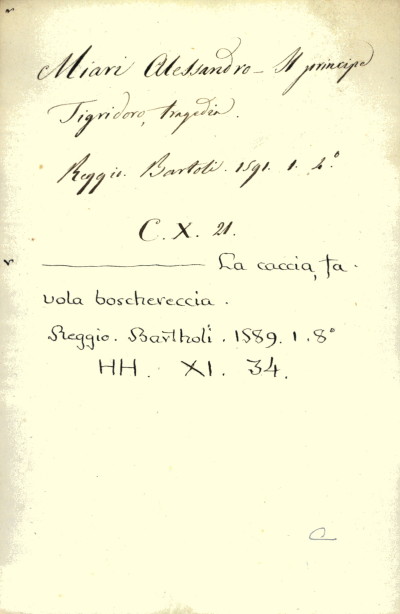 Miari Alessandro - Il principe
Tigridoro, tragedia.
Reggio. Bartoli. 1591. 1. 4.°
C. X. 21.
———— La caccia, fa-
vola boschereccia.
Reggio. Bartholi. 1589. 1. 8°
HH. XI. 34.